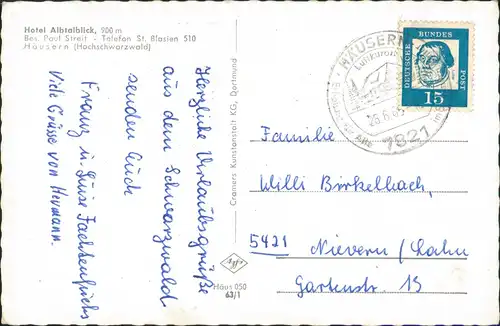 Hotel Albtalblick, 900 m
Bes. Paul Streit - Telefon St. Blasien 510
Häusern (Hochschwarzwald)
Herzliche Urlaubsgrüße
aus dem Schwarzwald
senden Euch
Franz u. Luise
Viele Grüsse von Heymann.
Cramers Kunstanstalt KG, Dortmund
Häus 050
63/1
HÄUSERN
7821
DEUTSCHE BUNDESPOST
15
Familie
Willi Birkelbach,
5421 Nievern/Lahn
Gartenstr. 15